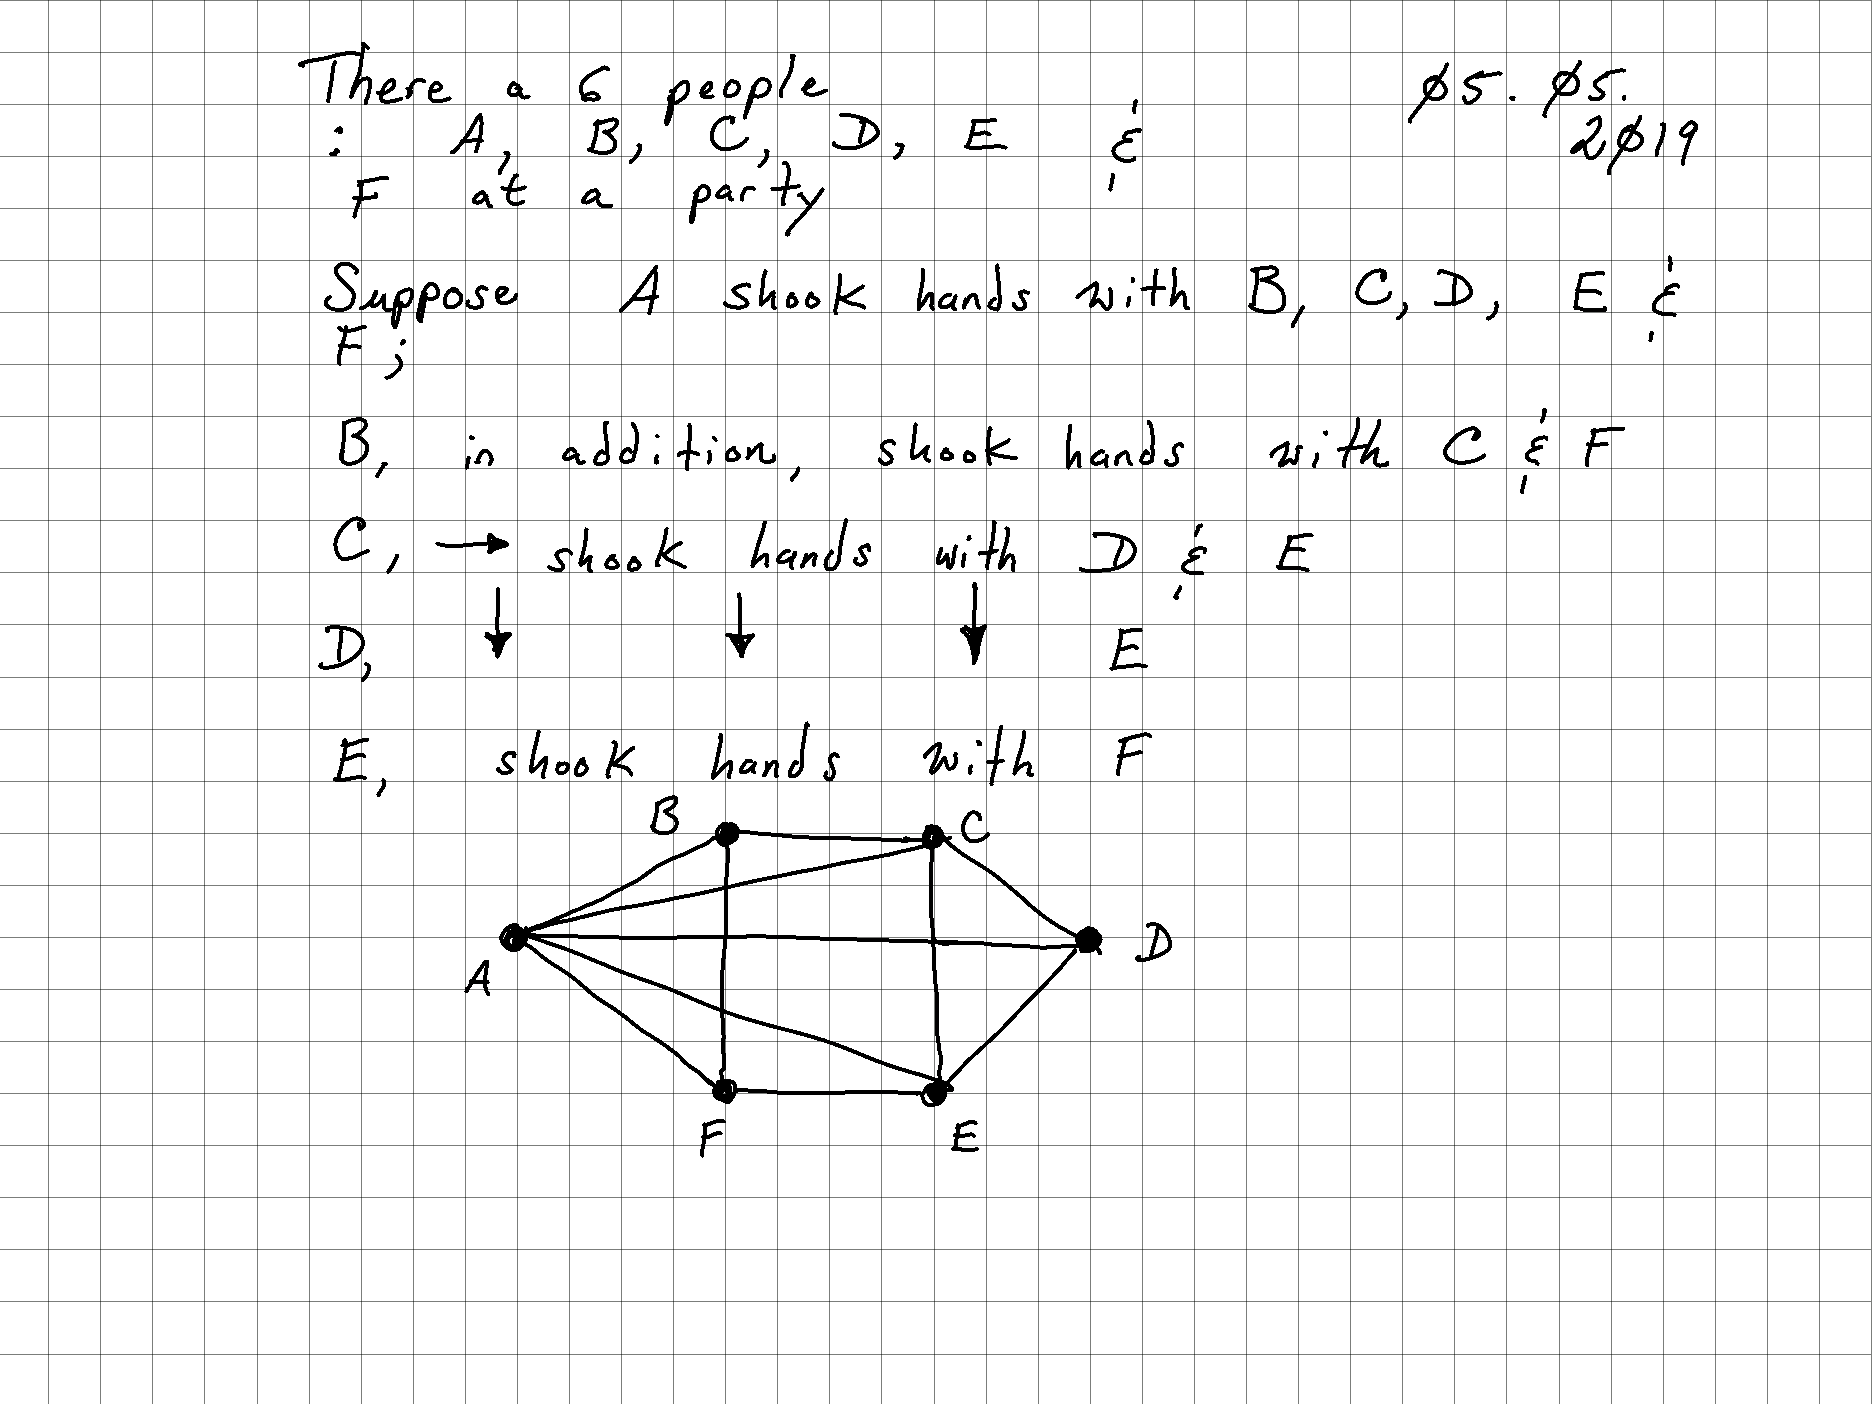 There a 6 people
ø5. ø5.
2ø19
: A, B, C, D, E &
F at a party
Suppose A shook hands with B, C, D, E &
F;
B, in addition, shook hands with C & F
C, → shook hands with D & E
D, ↓ ↓ ↓ E
E, shook hands with F
B C
A D
F E